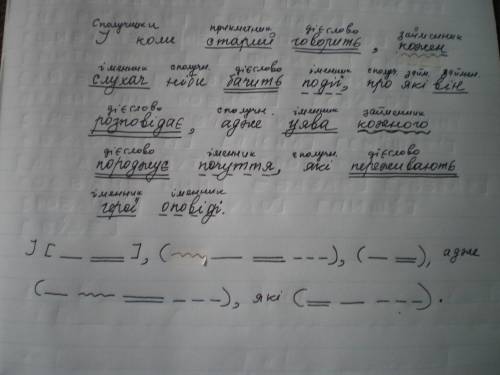 Сполучники прикметник дієслово займенник
І коли старий говорить, кожен
іменник сполучн. дієслово іменник сполуч. займ. займен.
слухач ніби бачить події, про які він
дієслово сполучн. іменник займенник
розповідає, адже уява кожного
дієслово іменник сполучн. дієслово
породжує почуття, які переживають
іменник іменник
герої оповіді.
І [ ], ( ), ( ), адже
( ), які ( ).